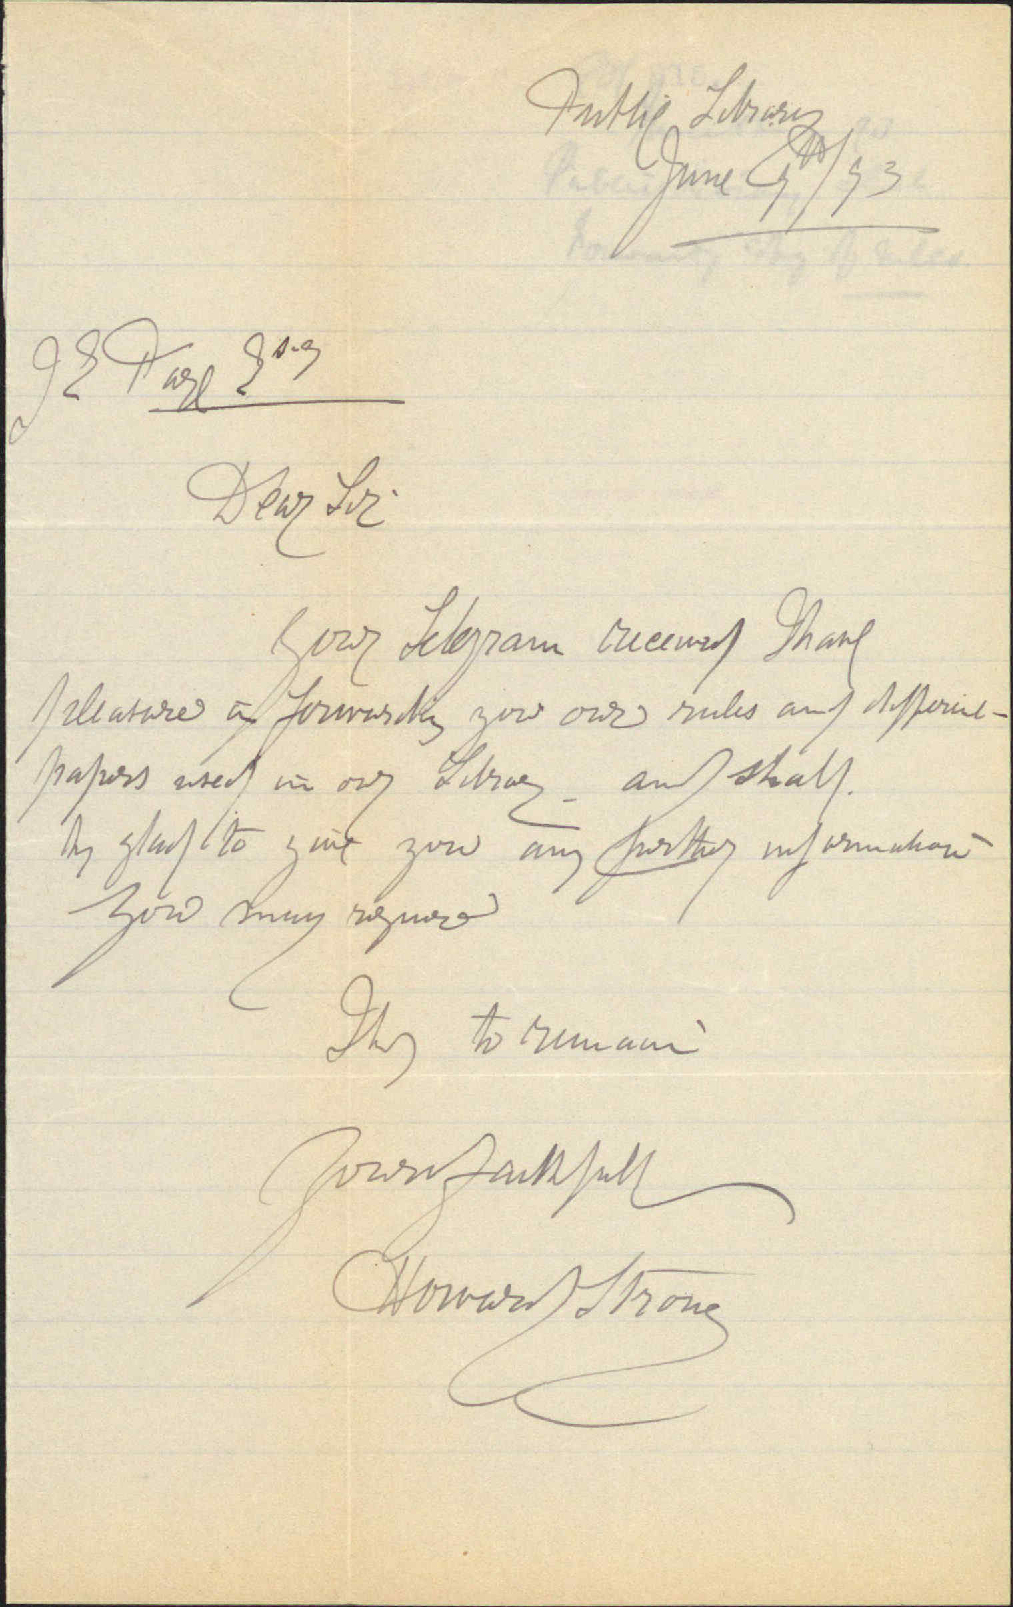 Public Library
June 9th/93
J E Page Esq
Dear Sir
Your Telegram received I have
pleasure in forwarding you our rules and different
papers used in our Library - and shall
be glad to give you any further information
you may require
I beg to remain
Yours faithfully
Howard Strong